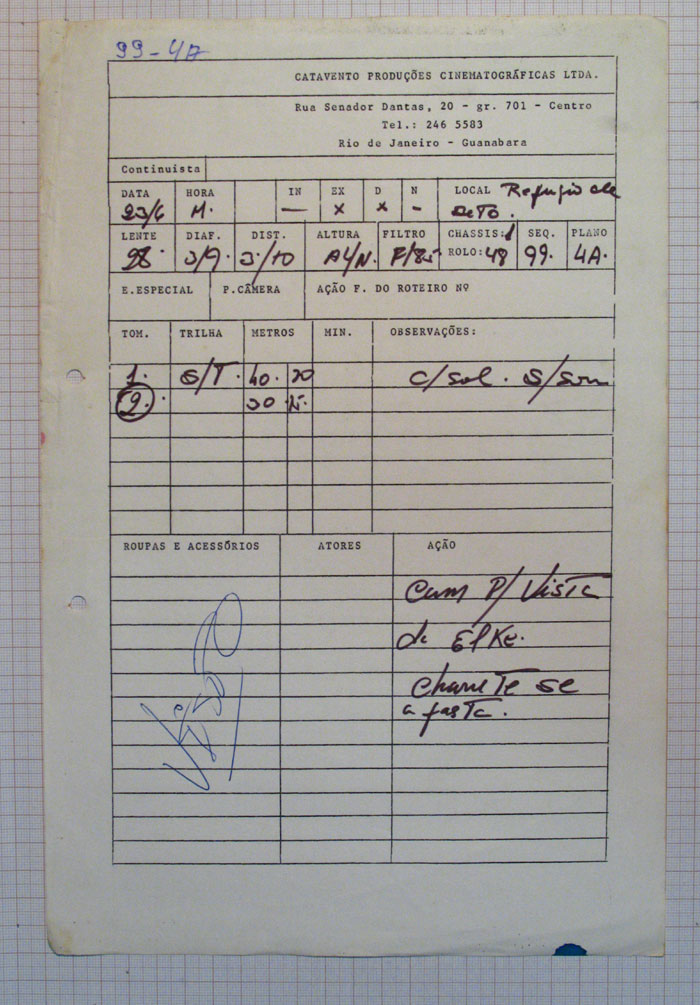 99-4A
CATAVENTO PRODUÇÕES CINEMATOGRÁFICAS LTDA.
Rua Senador Dantas, 20 - gr. 701 - Centro
Tel.: 246 5583
Rio de Janeiro - Guanabara
Continuista
DATA HORA IN EX D N LOCAL Refugio de
23/6 M. — x x -
LENTE DIAF. DIST. ALTURA FILTRO CHASSIS: 1 SEQ. PLANO
28. 3/10 A4/N. F/85 ROLO: 48 99. 4A.
E.ESPECIAL P.CÂMERA AÇÃO F. DO ROTEIRO Nº
TOM. TRILHA METROS MIN. OBSERVAÇÕES:
1. S/T. 40. 20 c/sol. s/som
2. 30
ROUPAS E ACESSÓRIOS ATORES AÇÃO
Cam P/ Vista
de Elke.
Charrete se
afasta.
Visto